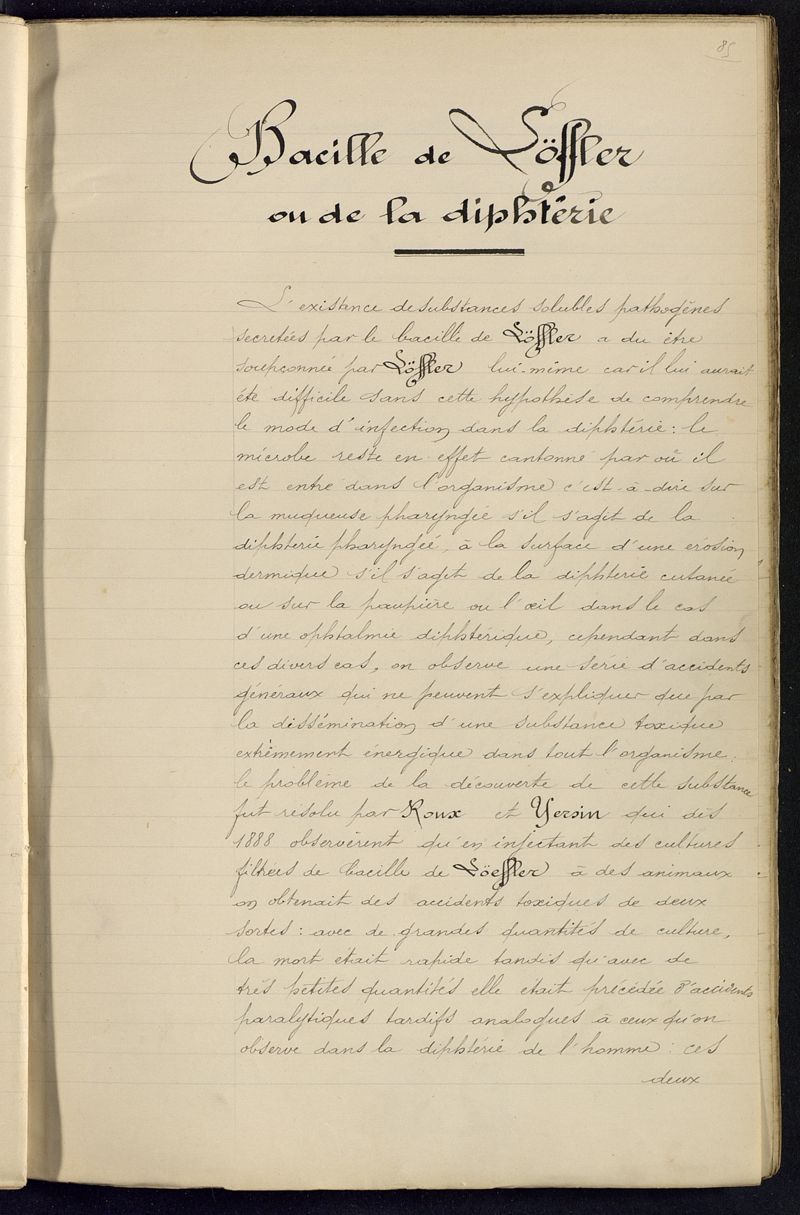 85
Bacille de Löffler
ou de la diphtérie
L'existence de substances solubles pathogènes
secretées par le bacille de Löffler a du être
soupçonnée par Löffler lui-même car il lui aurait
été difficile sans cette hypothèse de comprendre
le mode d'infection dans la diphtérie : le
microbe reste en effet cantonné par où il
est entré dans l'organisme c'est-à-dire sur
la muqueuse pharyngée s'il s'agit de la
diphterie pharyngée, à la surface d'une erosion
dermique s'il s'agit de la diphterie cutanée
ou sur la paupière ou l'œil dans le cas
d'une ophtalmie diphtérique, cependant dans
ces divers cas, on observe une série d'accidents
généraux qui ne peuvent s'expliquer que par
la dissémination d'une substance toxique
extrêmement énergique dans tout l'organisme :
le problème de la découverte de cette substance
fut résolu par Roux et Yersin qui dès
1888 observèrent qu'en injectant des cultures
filtrées de bacille de Löeffler à des animaux
on obtenait des accidents toxiques de deux
sortes : avec de grandes quantités de culture,
la mort était rapide tandis qu'avec de
très petites quantités elle était précédée d'accidents
paralytiques tardifs analogues à ceux qu'on
observe dans la diphtérie de l'homme : ces
deux